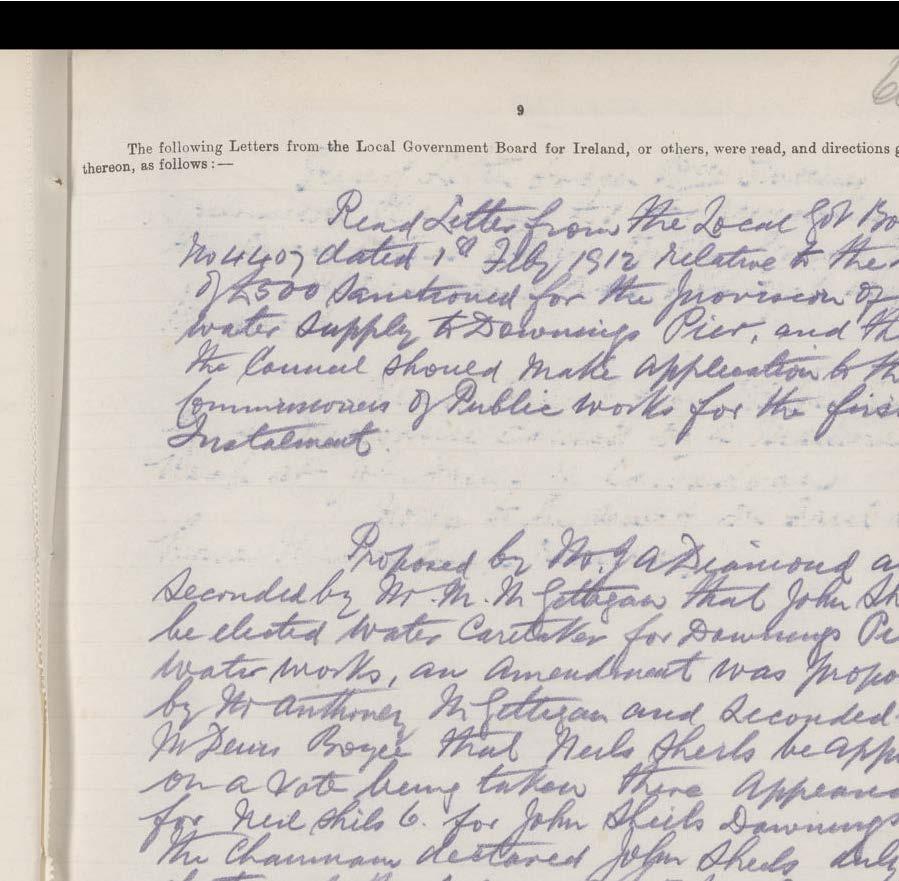 9
The following Letters from the Local Government Board for Ireland, or others, were read, and directions g
thereon, as follows :—
Read Letter from the Local Govt Bo
No 4407 dated 1st Feby 1912 relative to the
of £500 Sanctioned for the provision of
water supply to Downings Pier, and tha
the Council should make application to th
Commissioners of Public works for the firs
Instalment
Proposed by Mr. J A Diamond a
Seconded by Mr M. McGettigan that John Sh
be elected water Caretaker for Downings Pi
water works, an amendment was propo
by Mr Anthoney McGettigan and seconded
Mr Denis Boyce that Neils Sheils be appo
on a vote being taken there appeared
for Neil Shils 6. for John Sheils Downings
the Chairman declared John Sheils duly